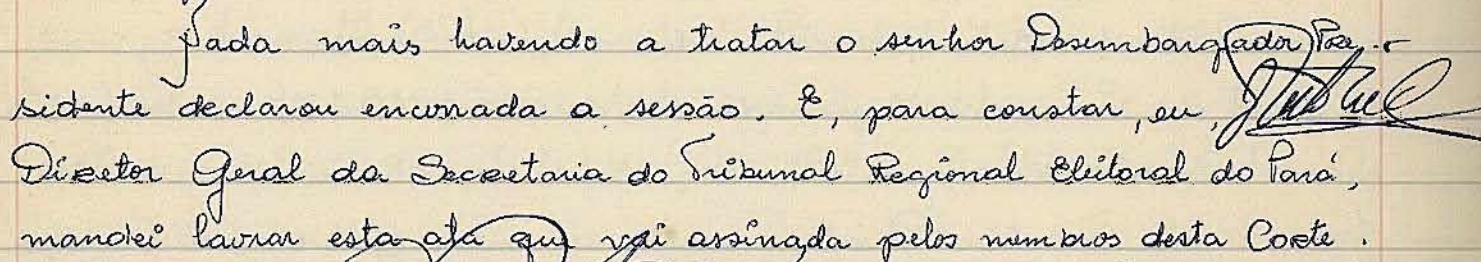 Nada mais havendo a tratar o senhor Desembargador Pre-
sidente declarou encerrada a sessão. E, para constar, eu,
Diretor Geral da Secretaria do Tribunal Regional Eleitoral do Pará,
mandei lavrar esta ata que vai assinada pelos membros desta Corte.